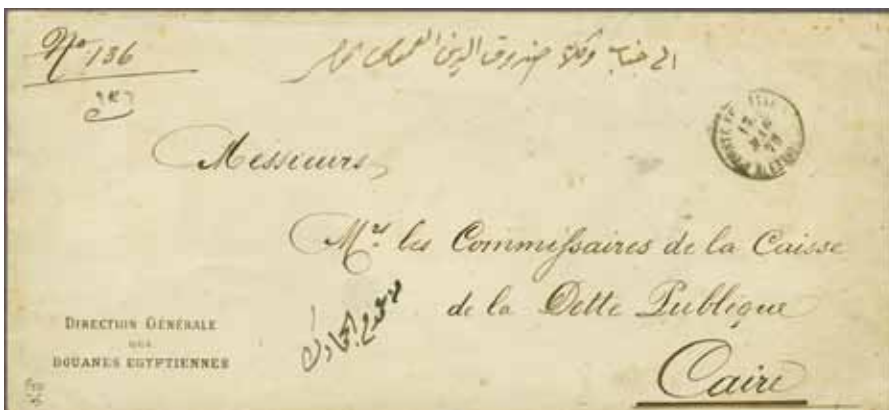 No 136
الى جناب وكلاء صندوق الدين العمومى بمصر
٩٣٦
Messieurs,
Mrs les Commissaires de la Caisse
de la Dette Publique
Caire
DIRECTION GÉNÉRALE
DES
DOUANES EGYPTIENNES